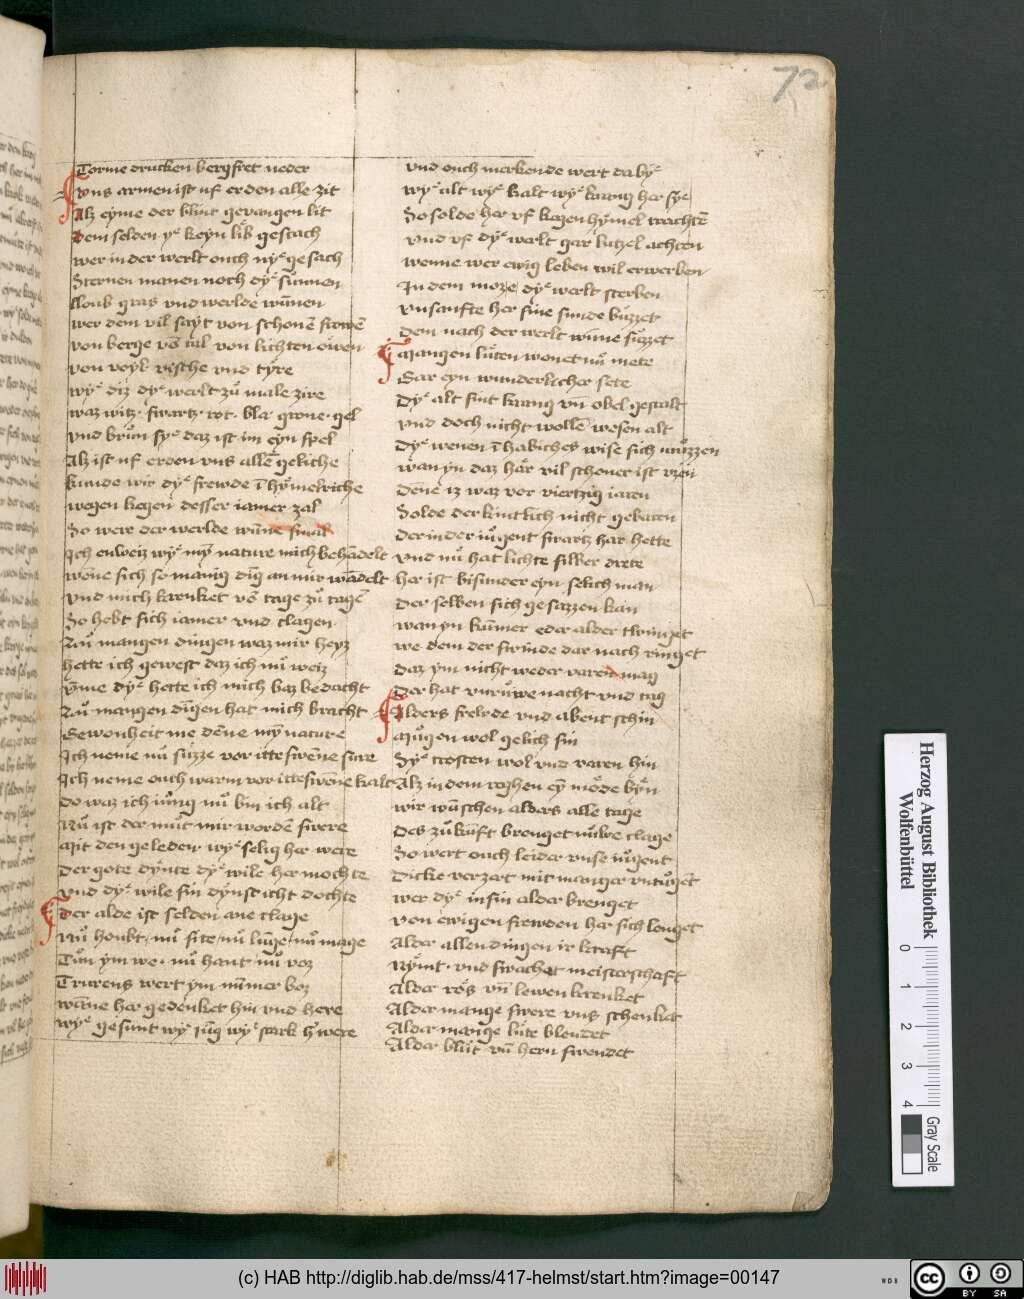 72
Torme drucken bergfret neder
Vns armen ist uf erden alle zit
Alz eyme der blint gevangen lit
Dem selden ye keyn lib geschach
wer in der werlt ouch nye gesach
Sternen manen noch dye sunnen
Loub gras vnd werlde wunnen
wer dem vil sayt von schonē frowen
von berge vō tal von lichten owen
von voyln vische vnd tyre
wye diz dye werlt zů male zire
waz witz swartz rot bla grone gel
vnd brun sye daz ist im eyn spel
Alz ist uf erden vns allē geliche
kunde wir dye frewde ī hymelriche
wegen kegen desser iamer zal
So were der werlde wūne smal
Ich enweiz wye my nature mich behādelt
wēne sich so manig dīg an mir wādelt
vnd mich krenket vō tage zů tagē
So hebt sich iamer vnd clagen
Nů mangen dingen waz mir heyz
hette ich gewest daz ich nů weiz
yme dye hette ich mich baz bedacht
Nů mangen dīgen hat mich bracht
Gewonheit me dēne my nature
Ich neme nů suzze vor itteswēne sure
Ich neme ouch warm vor itteswēne kalt
do waz ich iūng nů bin ich alt
Nů ist der můt mir wordē swere
Mit den geleden wye selig her were
Der gote dynte dye wile her mochte
vnd dye wile sin dynst icht dochte
Der alde ist selden ane clage
Nů houbt nů site nů lūge nů mage
Tůn ym we nů hant nů voz
Trurens wert ym nimmer boz
wēne her gedenket hin vnd here
wye gesunt wye iūg wye stark h' were
vnd ouch merkende wert da bye
wye alt wye kalt wye krang her sye
So solde her vf kegen hymel trachtē
vnd vf dye werlt gar lutzel achten
wenne wer ewig leben wil erwerben
In dem moze dye werlt sterben
vnsanfte her sine sunde buzzet
dem nach der werlt wūne suzzet
Mangen luten wonet nů mete
Gar eyn wunderlicher sete
Dye alt sint krang vn obel gestalt
vnd doch nicht wollē wesen alt
Dye wenen ī habiches wise sich muzzen
wan yn daz har vil schoner ist vzen
Dene iz waz vor viertzig iaren
Solde der kintlich nicht gebaren
Der in der iugent swartz har hette
vnd nů hat lichte silber drete
her ist bisunder eyn selich man
Der selben sich gesazzen kan
wan yn kummer eder alder thringet
we dem der swinde dar nach ringet
daz ym nicht weder varen mag
Der hat vnruwe nacht vnd tag
Alders frewde vnd abent schin
Mugen wol gelich sin
Sye trosten wol vnd varen hin
Alz in dem reghen ey mode byn
wir wūschen alders alle tage
Des zů kūft brenget nuwe clage
So wert ouch leider vnse iugent
Dicke verzart mit manger vntugēt
wer dye in sin alder brenget
von ewigen frewden har sich lenget
Alder allen dingen ir kraft
Nymt vnd swachet meisterschaft
Alder ros vn lewen krenket
Alder mange swere vns schenket
Alder mange lute blendet
Alder blut vn hern swendet
Herzog August Bibliothek
Wolfenbüttel
0 1 2 3 4
Gray Scale
(c) HAB http://diglib.hab.de/mss/417-helmst/start.htm?image=00147
WDB
cc BY SA